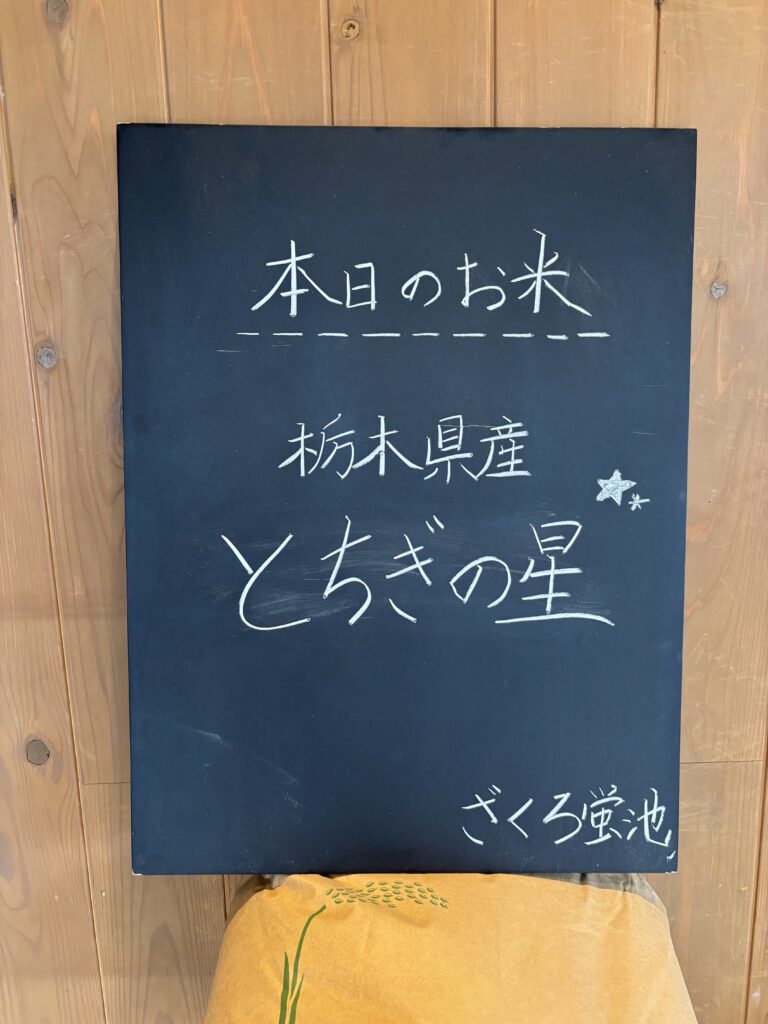 本日のお米
栃木県産
とちぎの星
ざくろ蛍池